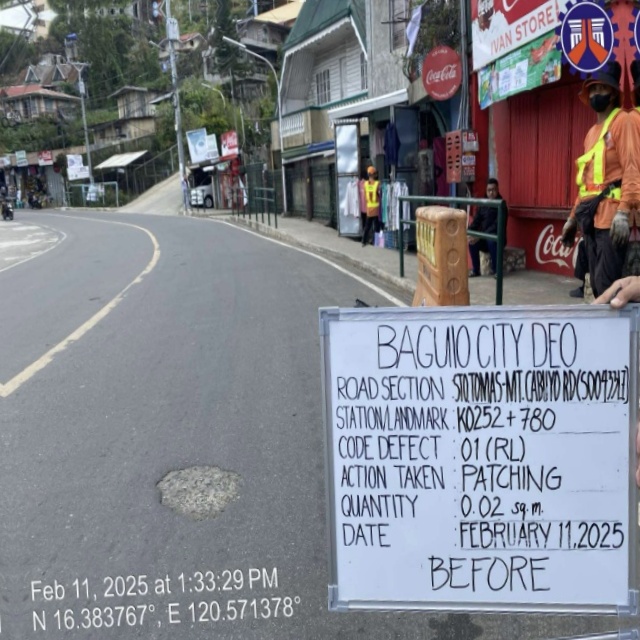 IVAN STORE
Coca-Cola
Coca-Cola
BAGUIO CITY DEO
ROAD SECTION STO TOMAS-MT. CABUYO RD (S00433LZ)
STATION/LANDMARK : K0252+780
CODE DEFECT : 01 (RL)
ACTION TAKEN : PATCHING
QUANTITY : 0.02 sq.m.
DATE : FEBRUARY 11, 2025
BEFORE
Feb 11, 2025 at 1:33:29 PM
N 16.383767°, E 120.571378°